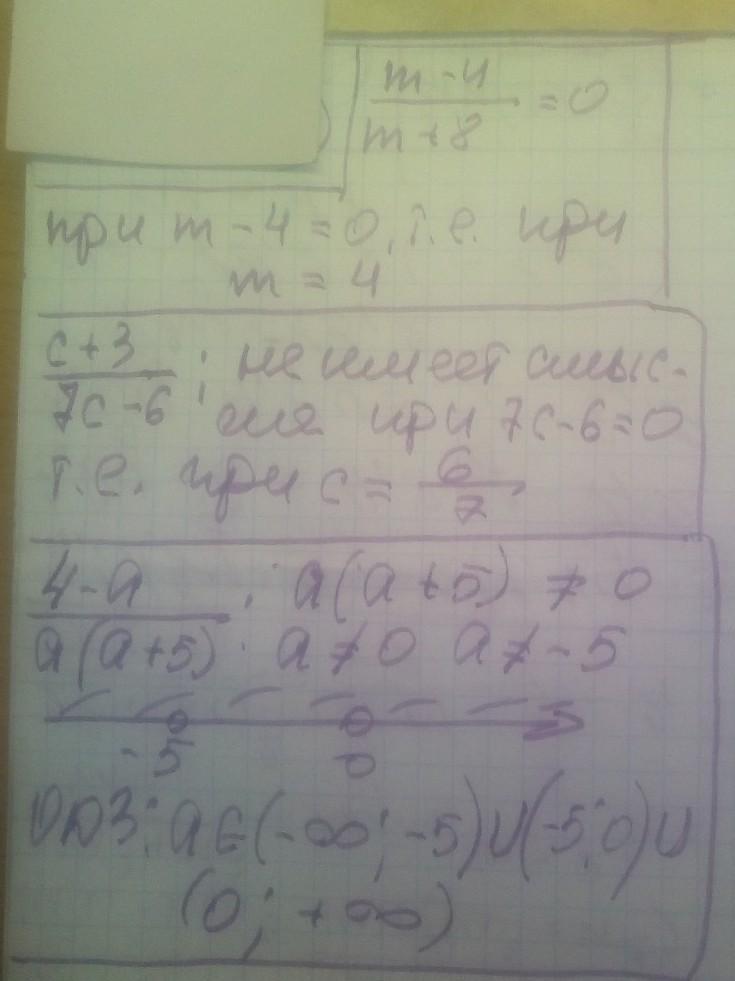 ) m-4/m+8 = 0
при m-4=0, т.е. при
m = 4
c+3/7c-6; не имеет смыс-
ла при 7c-6=0
т.е. при c = 6/7
4-a/a(a+5): a(a+5) ≠ 0
a ≠ 0 a ≠ -5
-5 0
ОДЗ: a∈(-∞; -5)∪(-5; 0)∪
(0; +∞)